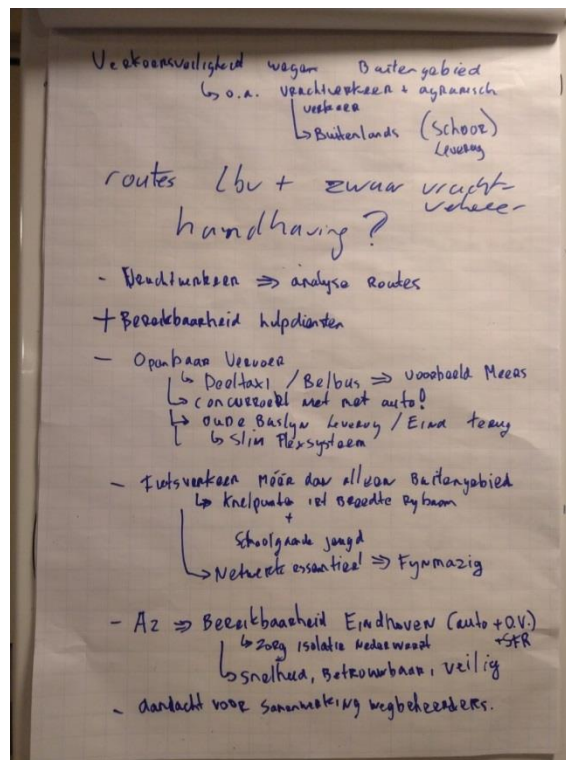 Verkeersveiligheid wegen Buitengebied
↳ o.a. vrachtverkeer + agrarisch
verkeer
↳ Buitenlands (School)
Leveroy
routes lbv + zwaar vracht-
verkeer
handhaving?
- Vrachtverkeer ⇒ analyse Routes
+ Bereikbaarheid hulpdiensten
- Openbaar Vervoer
↳ Deeltaxi / Belbus ⇒ voorbeeld Meers
↳ concurreert met net auto!
↳ oude Buslyn Leveroy / Eind terug
↳ Slim Flexsysteem
- Fietsverkeer Móér dan alleen Buitengebied
↳ Knelpunte ist Breedte Rybaan
+
Schoolgaande jeugd
↳ Netwerk essentieel ⇒ Fynmazig
- A2 ⇒ Bereikbaarheid Eindhoven (auto + O.V.)
↳ zorg isolatie Nederweert
↳ snelheid, Betrouwbaar, veilig
- aandacht voor samenwerking wegbeheerders.